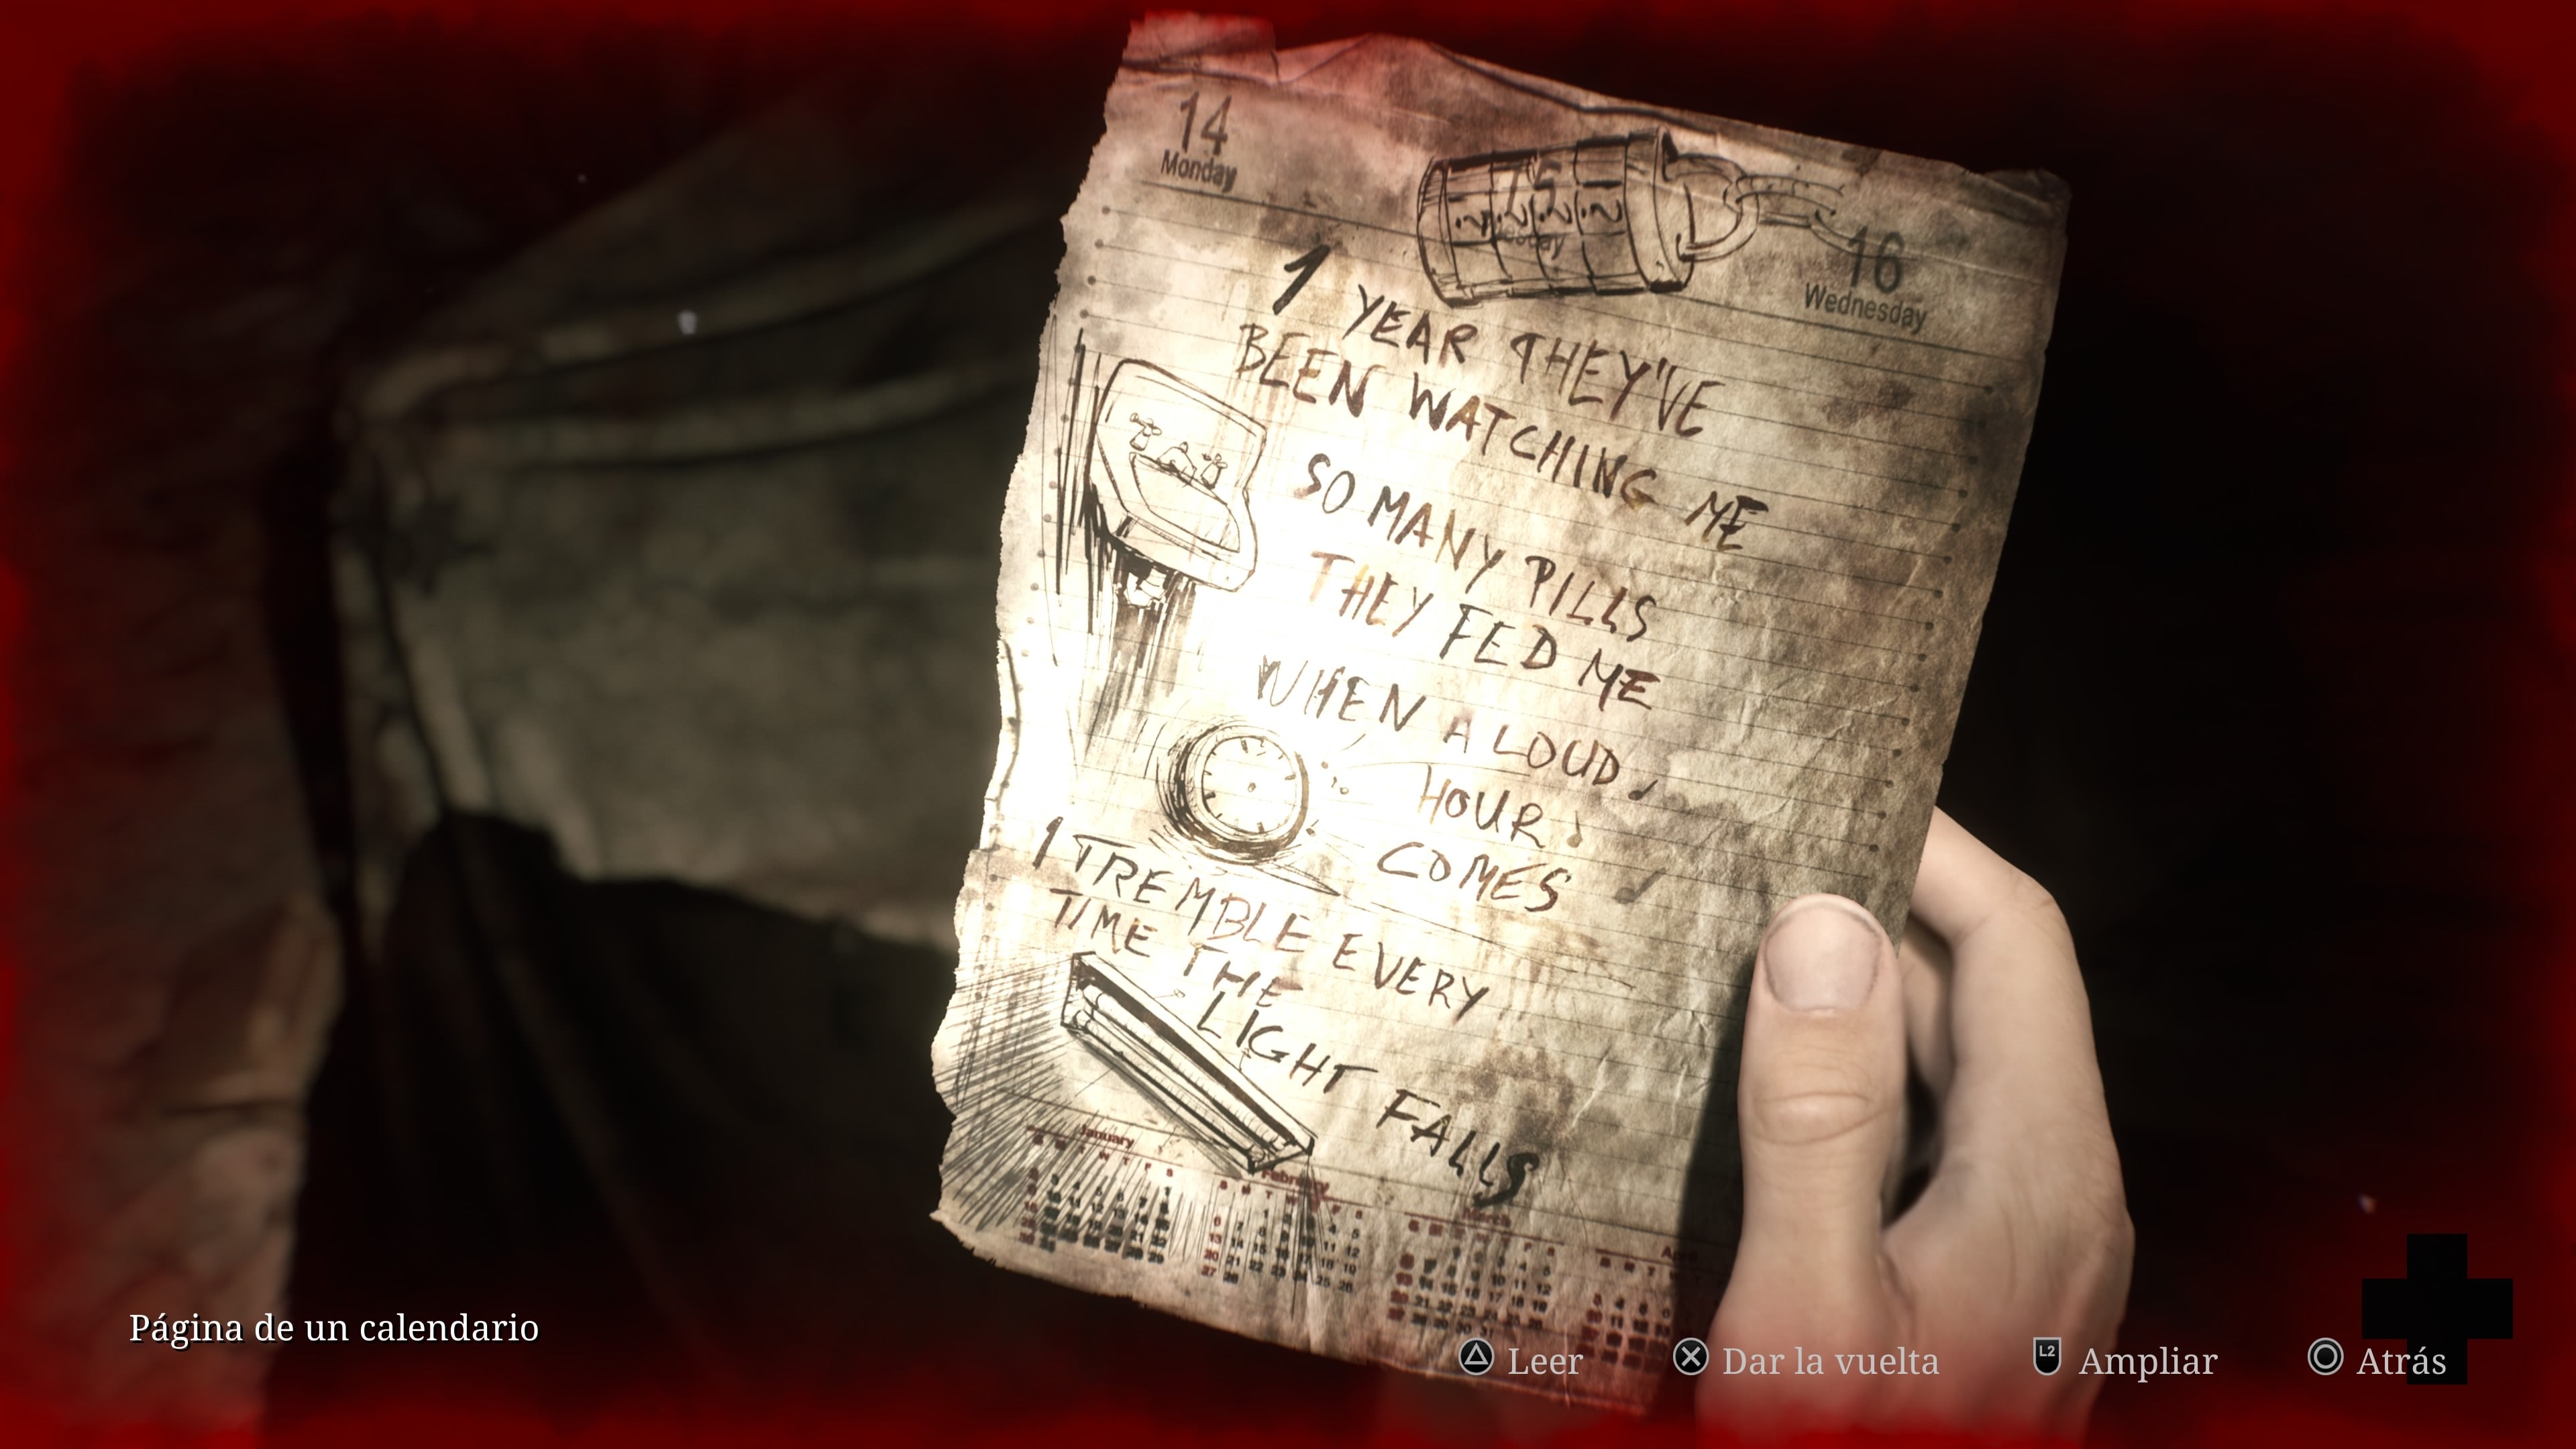 14
Monday
15
16
Wednesday
1 YEAR THEY'VE
BEEN WATCHING ME
SO MANY PILLS
THEY FED ME
WHEN A LOUD
HOUR
COMES
I TREMBLE EVERY
TIME THE
LIGHT FALLS
January
February
March
April
Página de un calendario
Leer
Dar la vuelta
L2 Ampliar
Atrás